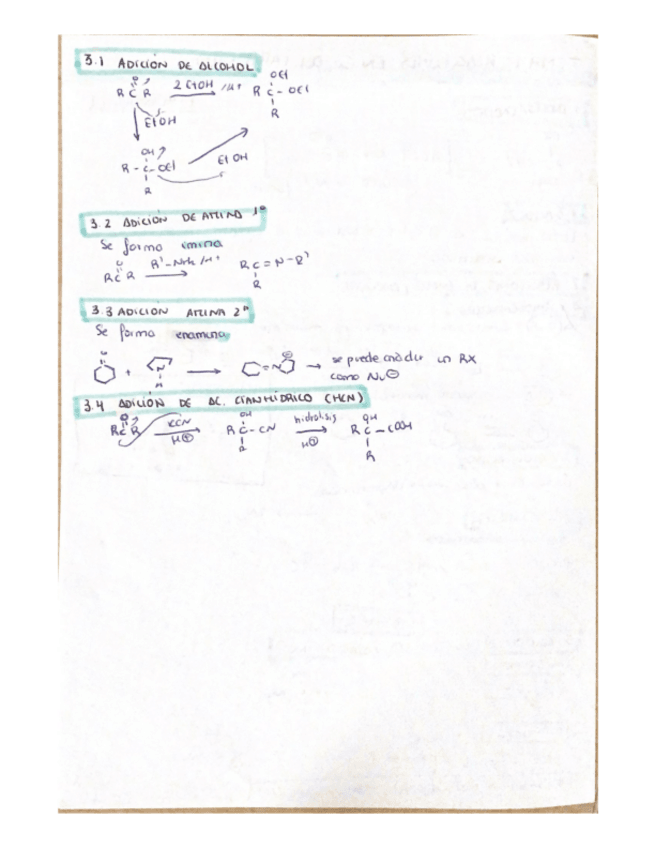 3.1 ADICIÓN DE ALCOHOL
O OEt
R C R 2 EtOH /H+ R C - OEt
R
EtOH
OH
R - C - OEt EtOH
R
3.2 ADICIÓN DE AMINA 1ª
Se forma imina
O
R C R R'-NH2 /H+ R C = N - R'
R
3.3 ADICIÓN AMINA 2ª
Se forma enamina
O
+ N → = N ⊕ → se puede añadir un RX
H como Nu⊖
3.4 ADICIÓN DE AC. CIANHÍDRICO (HCN)
O OH OH
R C R KCN R C - CN hidrólisis R C - COOH
H⊕ R H⊕ R